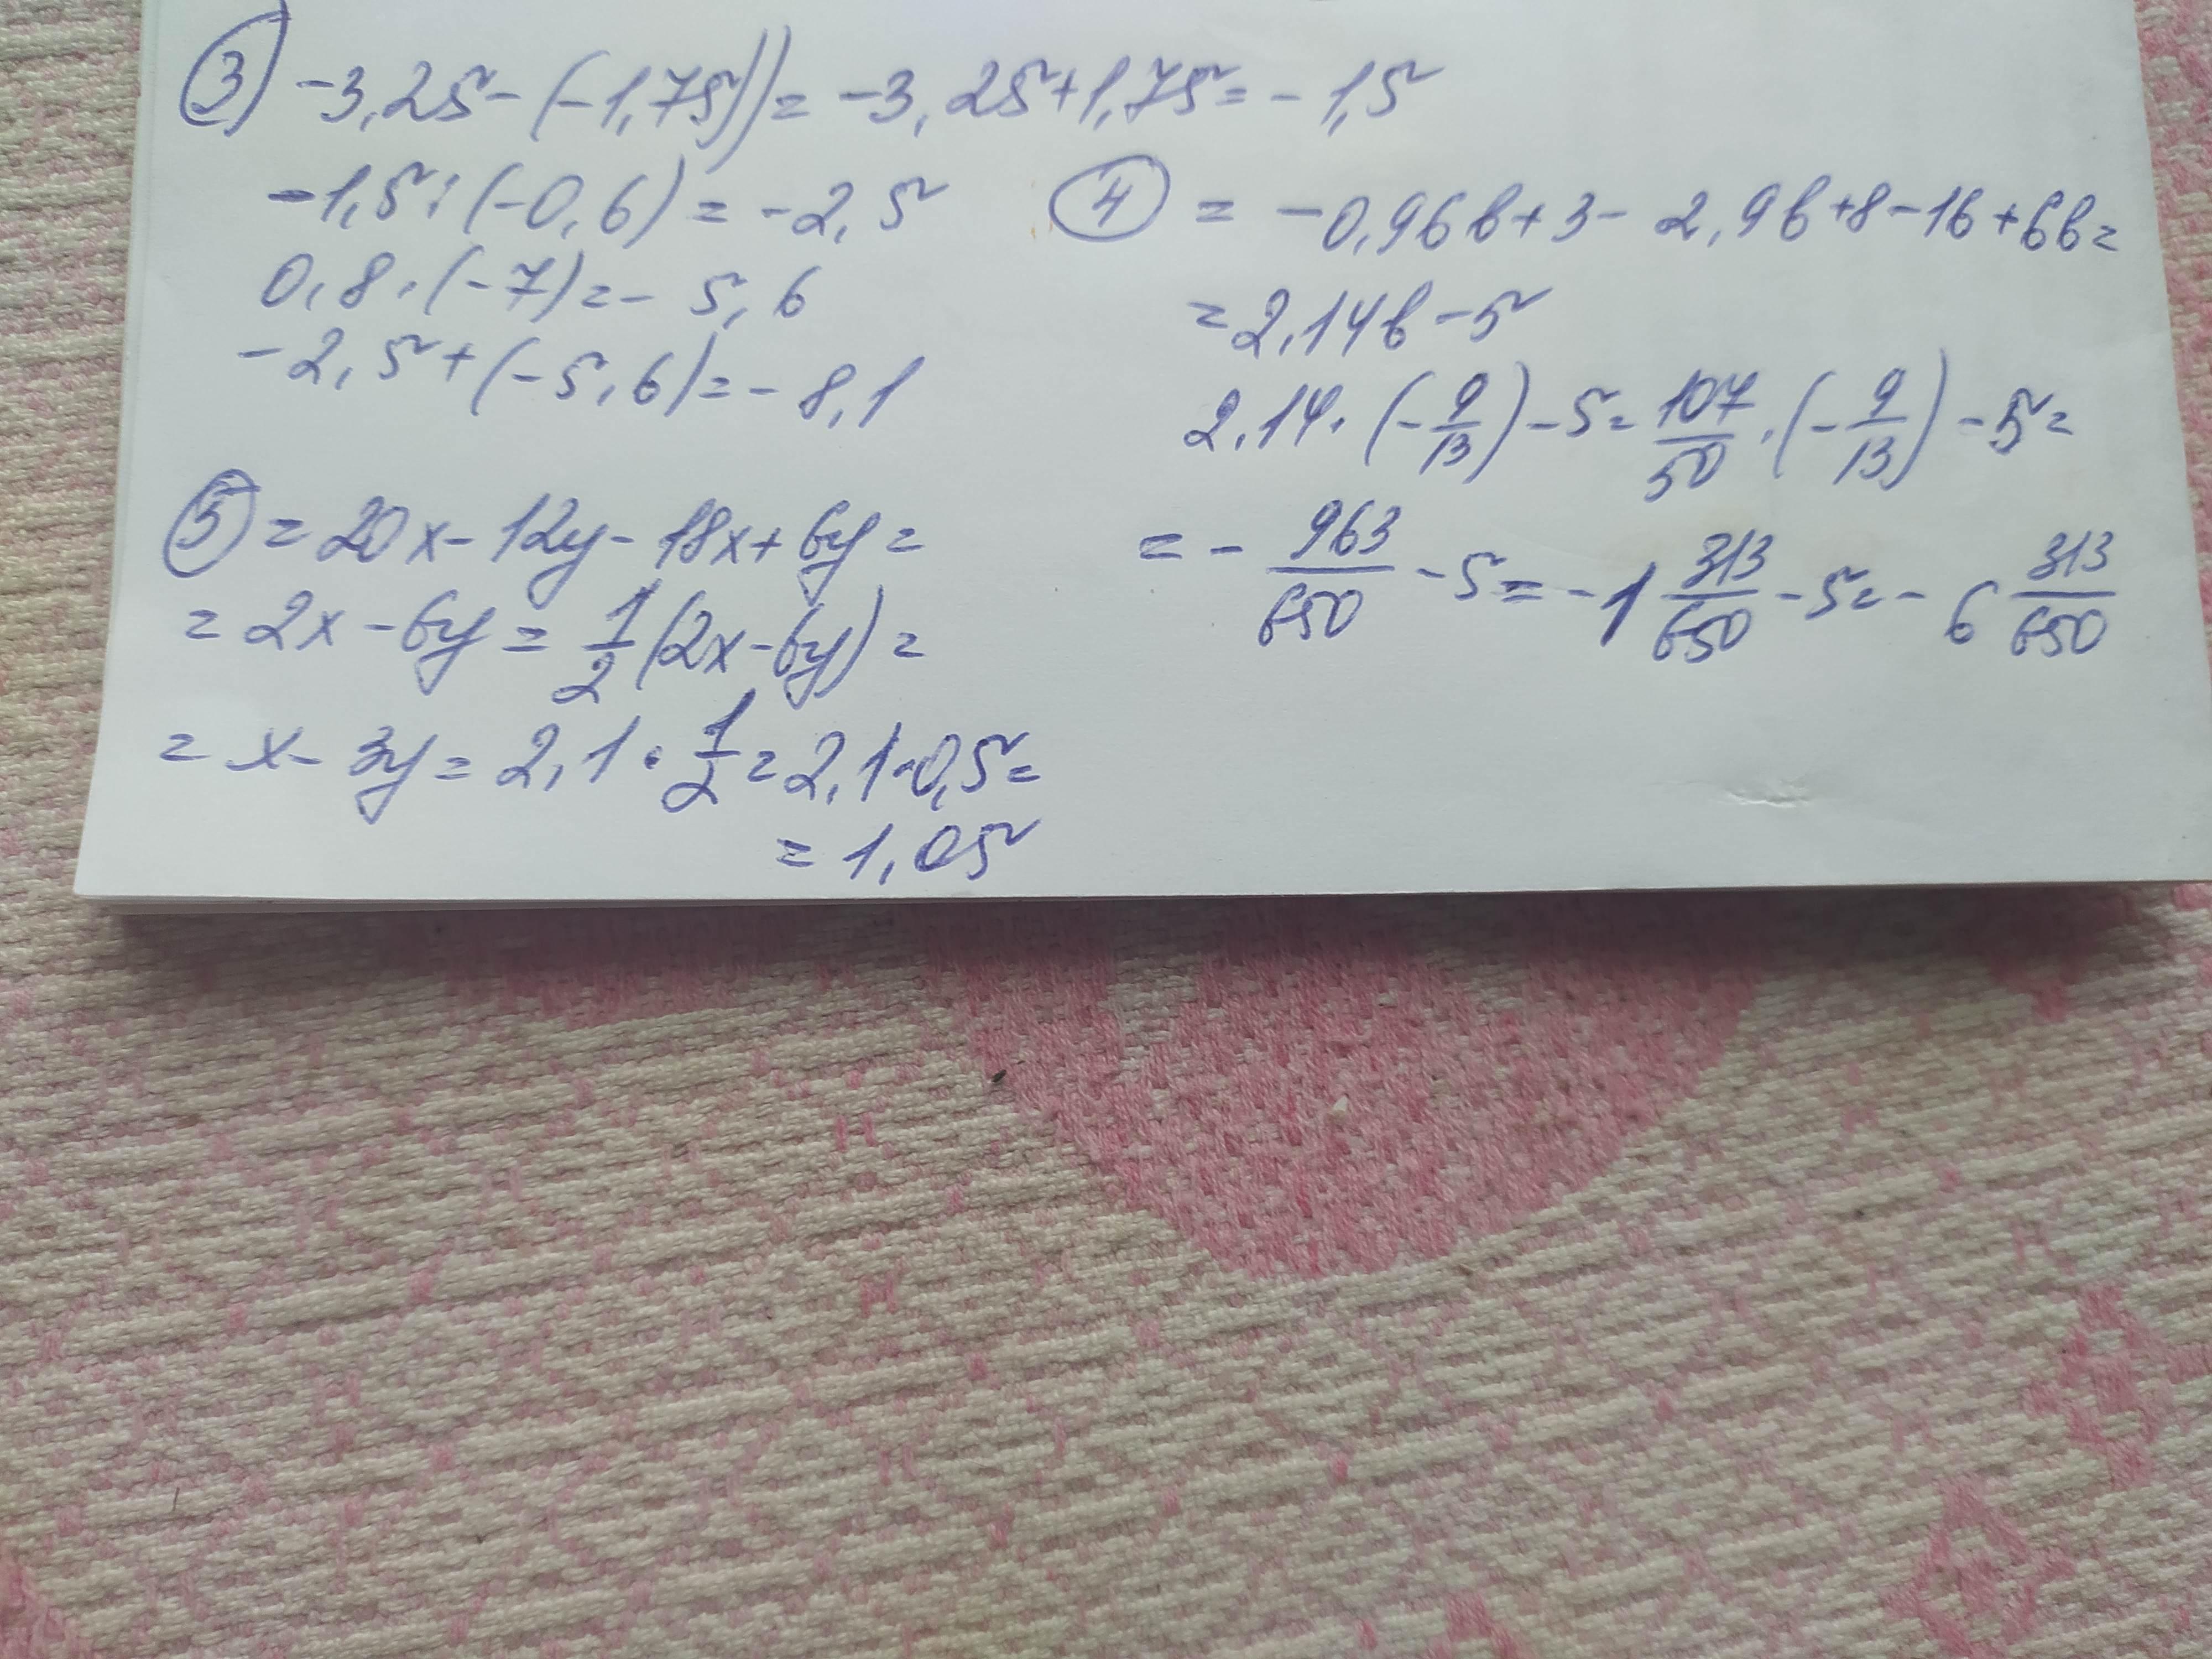 ③ -3,25-(-1,75))=-3,25+1,75=-1,5
-1,5:(-0,6)=-2,5
0,8·(-7)=-5,6
-2,5+(-5,6)=-8,1
④ = -0,96b+3-2,9b+8-16+6b=
=2,14b-5
2,14·(-9/13)-5=107/50·(-9/13)-5=
=-963/650-5=-1 313/650-5=-6 313/650
⑤ =20x-12y-18x+6y=
=2x-6y=1/2(2x-6y)=
=x-3y=2,1·1/2=2,1·0,5=
=1,05